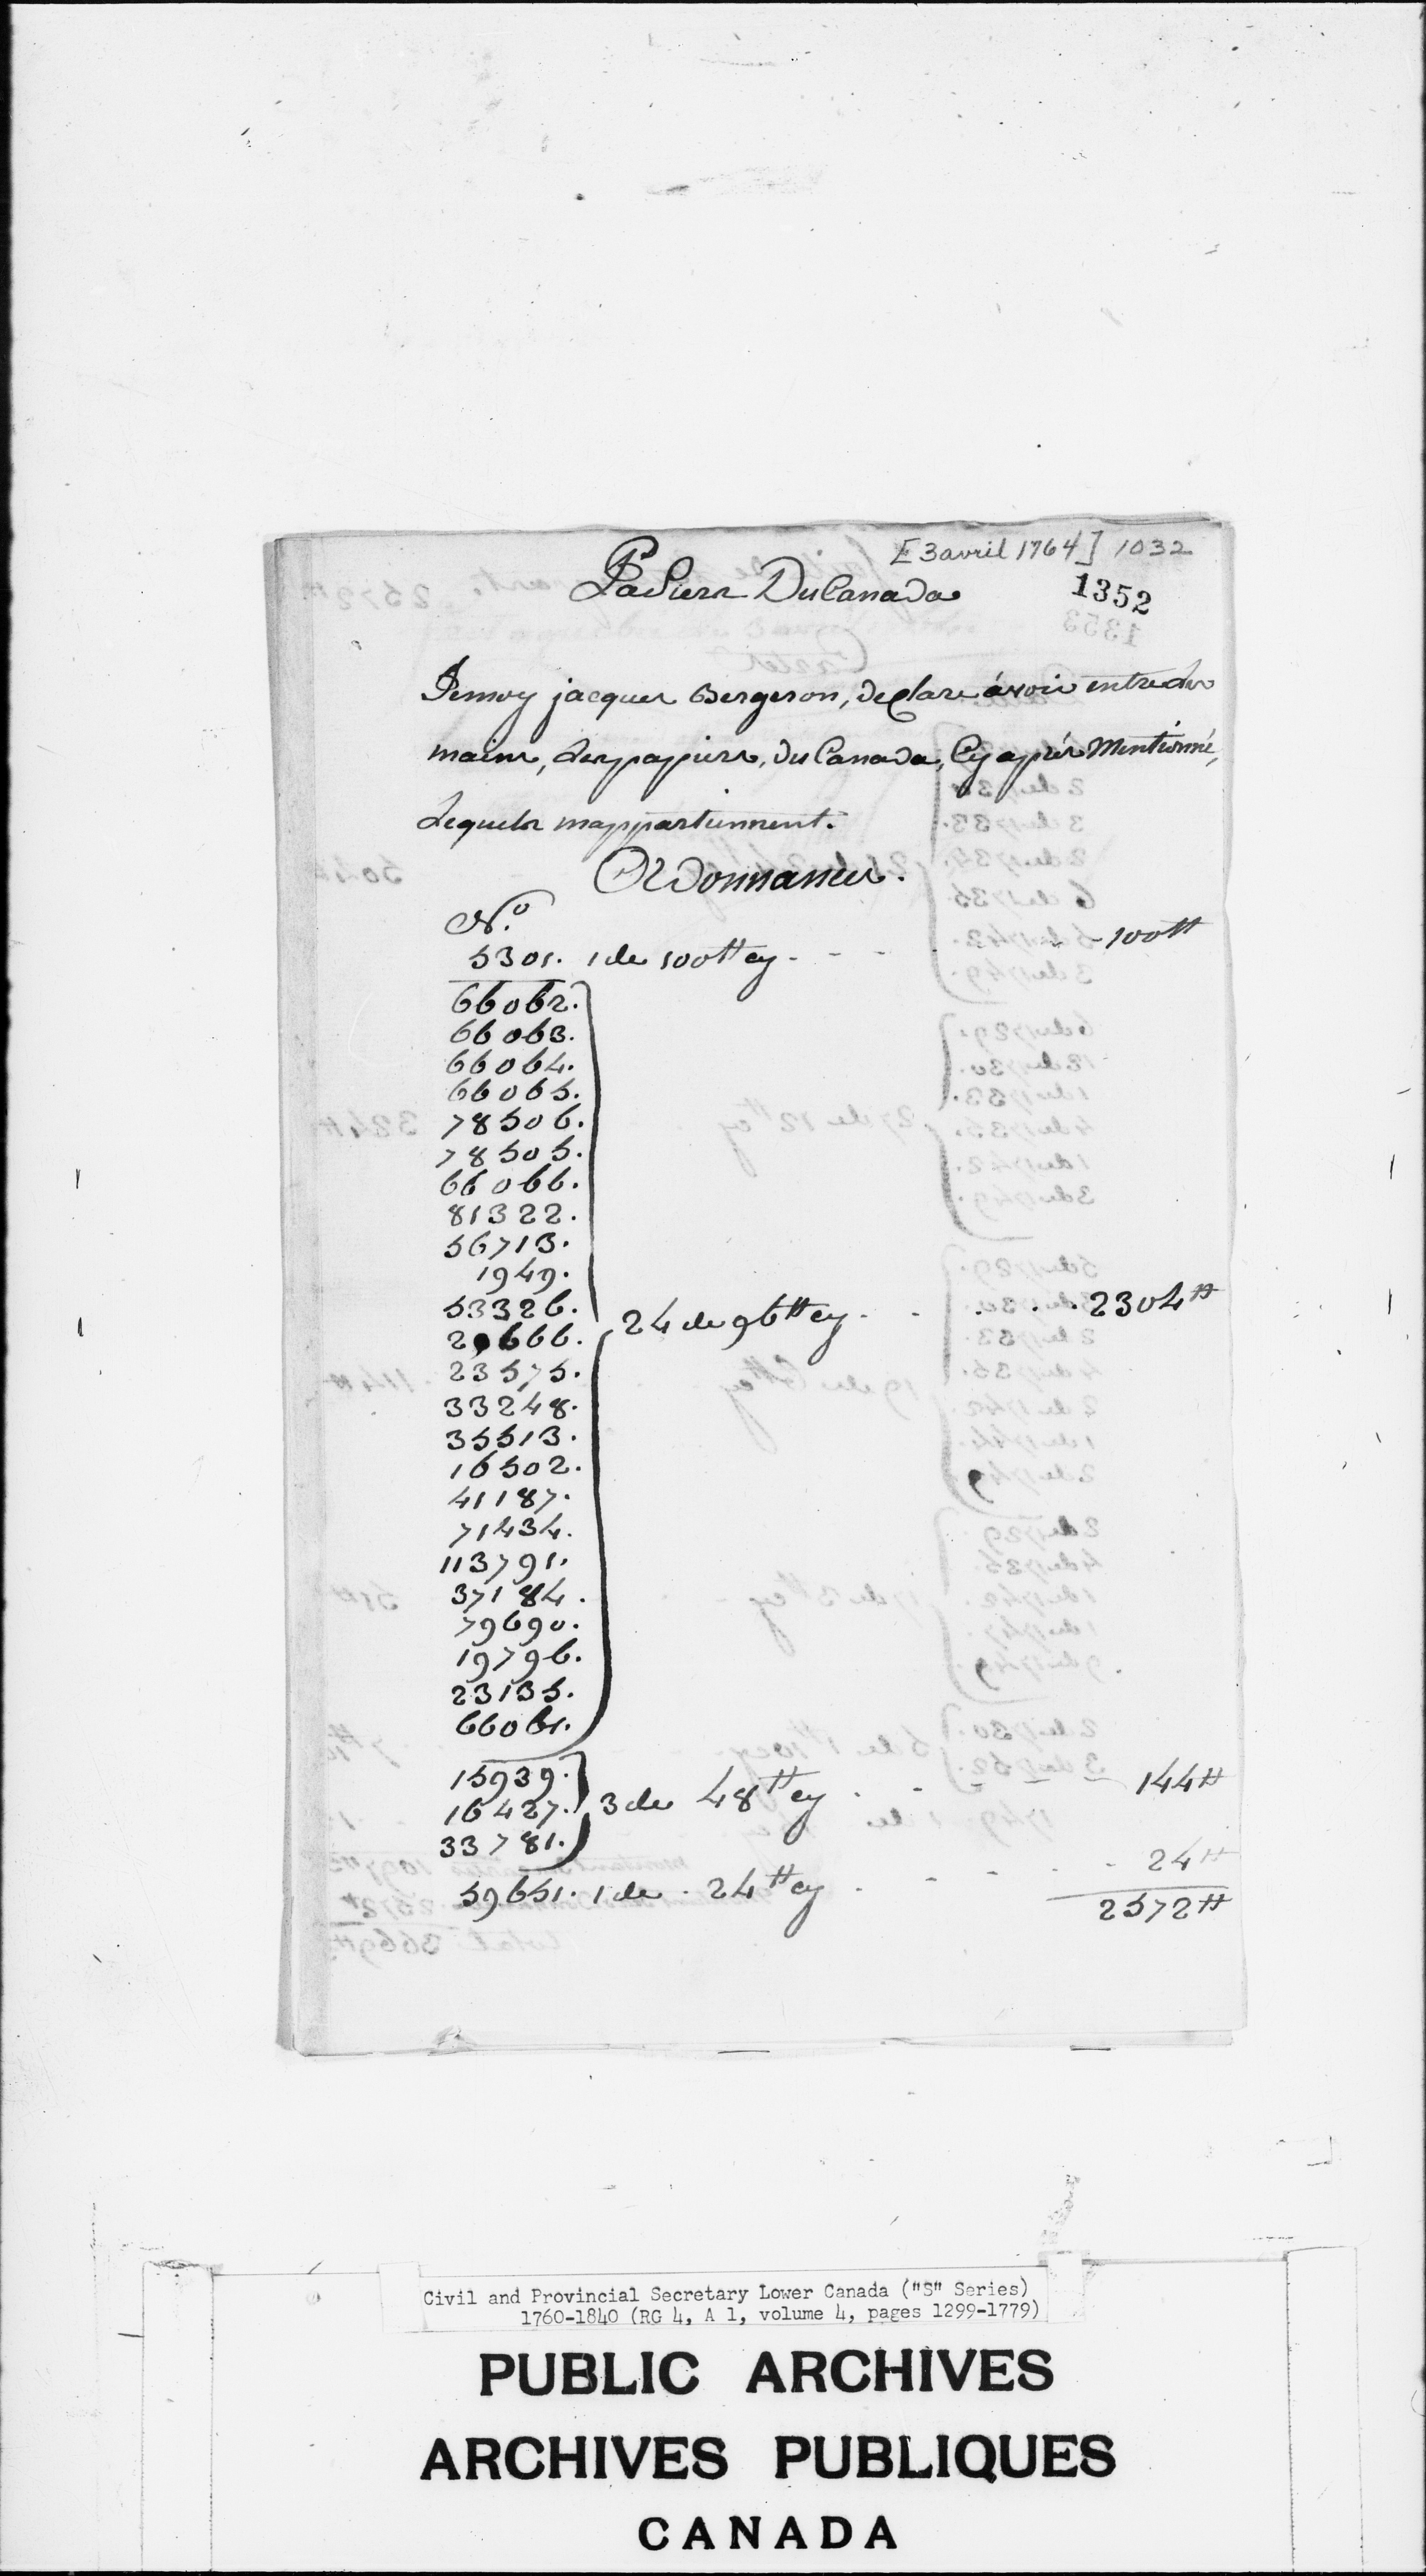 [3 avril 1764] 1032
Papiers Du Canada
1352
Je moy jacques Bergeron, declare avoir entre les
mains, les papiers, du Canada, Cy aprés Mentionné,
Lequels mappartiennent.
Ordonnances.
N.o
5301. 1 de 100tt cy - - - - 100tt
66062.
66063.
66064.
66065.
78506.
78505.
66066.
81322.
56713.
1949.
53326.
24 de 96tt cy - - . . . 2304tt
29666.
23575.
33248.
35513.
16502.
41187.
71434.
113791.
37184.
79690.
19796.
23135.
66061.
15939.
16427. 3 de 48tt cy . - 144tt
33781.
59651. 1 de . 24tt cy . - - . - 24tt
2572tt
Civil and Provincial Secretary Lower Canada ("S" Series)
1760-1840 (RG 4, A 1, volume 4, pages 1299-1779)
PUBLIC ARCHIVES
ARCHIVES PUBLIQUES
CANADA